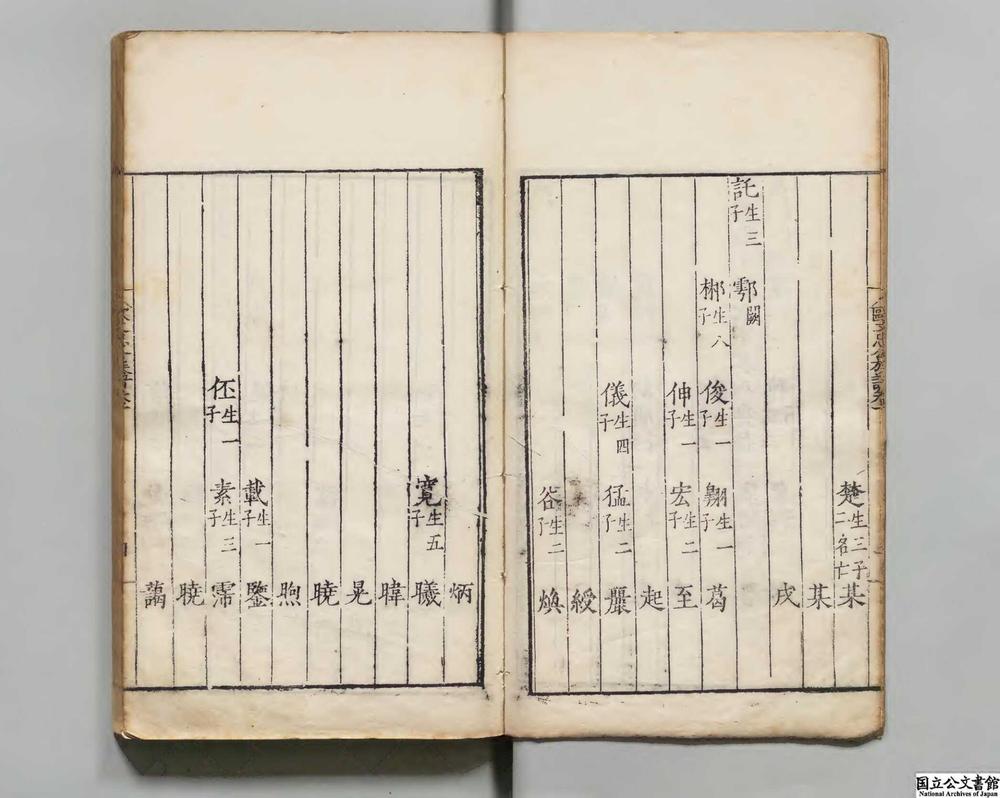 楚生三子二名亡 某
某
戌
託生三子 鄠闕
郴生八子 俊生一子 翱生一子 葛
伸生一子 宏生二子 至
起
儀生四子 猛生二子
綬
谷生二子 煥
炳
寬生五子 曦
暐
晃
曉
煦
載生一子 鑒
伾生一子 素生三子 霈
曉
藹
国立公文書館
National Archives of Japan